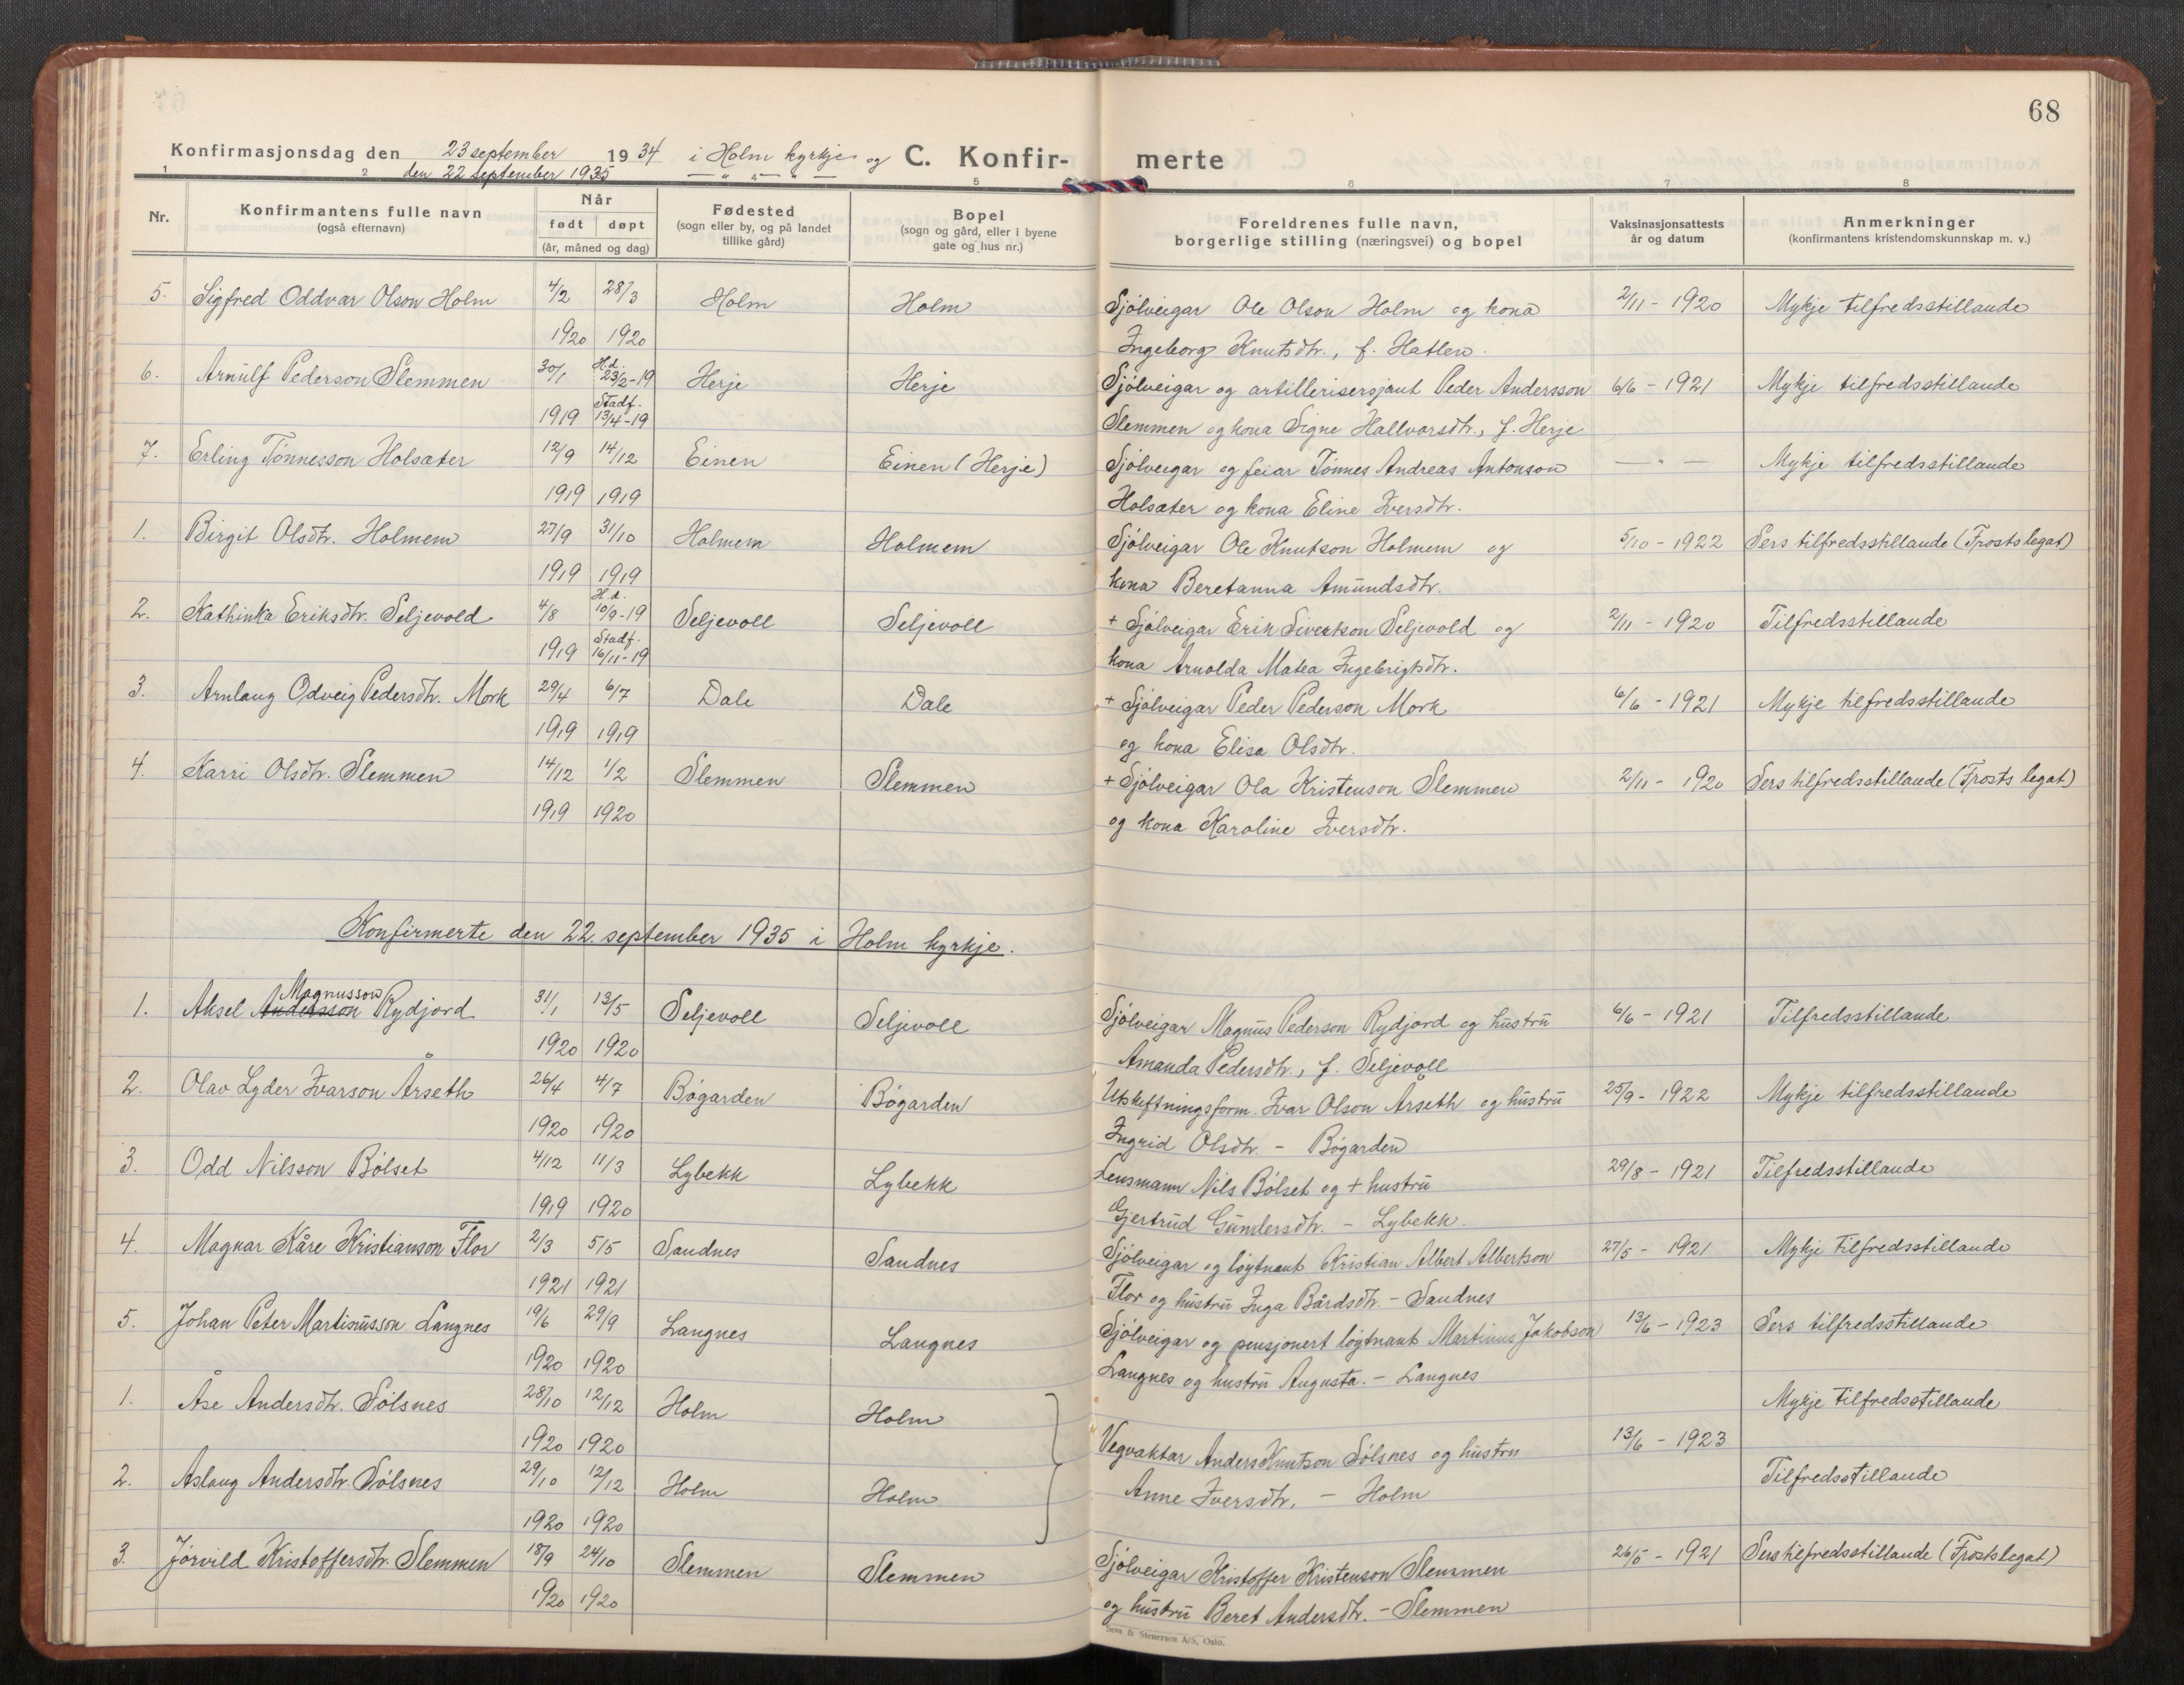 68
Konfirmasjonsdag den 23 september 1934 i Holm kyrkje og C. Konfir- merte
den 22 september 1935 — " — " —
1 2 3 4 5 6 7 8
Nr. Konfirmantens fulle navn (også efternavn) Når født døpt (år, måned og dag) Fødested (sogn eller by, og på landet tillike gård) Bopel (sogn og gård, eller i byene gate og hus nr.) Foreldrenes fulle navn, borgerlige stilling (næringsvei) og bopel Vaksinasjonsattests år og datum Anmerkninger (konfirmantens kristendomskunnskap m. v.)
5. Sigfred Oddvar Olson Holm 4/2 28/3 Holm Holm Sjølveigar Ole Olson Holm og kona 2/11 - 1920 Mykje tilfredsstillande
1920 1920 Ingeborg Knutsdtr., f. Hatlen.
6. Arnulf Pederson Slemmen 30/1 H.d. 23/2-19 Herje Herje Sjølveigar og artillerisersjant Peder Andersson 6/6 - 1921 Mykje tilfredsstillande
1919 Stadf. 13/4-19 Slemmen og kona Signe Hallvarsdtr., f. Herje
7. Erling Tønnesson Holsæter 12/9 14/12 Einen Einen (Herje) Sjølveigar og feiar Tønnes Andreas Antonson — " — Mykje tilfredsstillande
1919 1919 Holsæter og kona Eline Iversdtr.
1. Birgit Olsdtr. Holmem 27/9 31/10 Holmem Holmem Sjølveigar Ole Knutson Holmem og 5/10 - 1922 Sers tilfredsstillande (Frosts legat)
1919 1919 kona Beretanna Amundsdtr.
2. Kathinka Eriksdtr. Seljevold 4/8 H.d. 10/9-19 Seljevoll Seljevoll + Sjølveigar Erik Sivertson Seljevold og 2/11 - 1920 Tilfredsstillande
1919 Stadf. 16/11-19 kona Arnolda Matea Ingebrigtsdtr.
3. Arnlaug Odveig Pedersdtr. Mork 29/4 6/7 Dale Dale + Sjølveigar Peder Pederson Mork 6/6 - 1921 Mykje tilfredsstillande
1919 1919 og kona Elisa Olsdtr.
4. Karri Olsdtr. Slemmen 14/12 1/2 Slemmen Slemmen + Sjølveigar Ola Kristenson Slemmen 2/11 - 1920 Sers tilfredsstillande (Frosts legat)
1919 1920 og kona Karoline Iversdtr.
Konfirmerte den 22. september 1935 i Holm kyrkje.
Magnusson
1. Aksel Andersson Rydjord 31/1 13/5 Seljevoll Seljevoll Sjølveigar Magnus Pederson Rydjord og hustru 6/6 - 1921 Tilfredsstillande
1920 1920 Amanda Pedersdtr., f. Seljevoll
2. Olav Lyder Ivarson Årseth 26/4 4/7 Bøgarden Bøgarden Utskiftningsform. Ivar Olson Årseth og hustru 25/9 - 1922 Mykje tilfredsstillande
1920 1920 Ingrid Olsdtr. - Bøgarden
3. Odd Nilsson Bølset 4/12 11/3 Lybekk Lybekk Lensmann Nils Bølset og + hustru 29/8 - 1921 Tilfredsstillande
1919 1920 Gjertrud Gundersdtr. - Lybekk.
4. Magnar Kåre Kristianson Flor 2/3 5/5 Sandnes Sandnes Sjølveigar og løytnant Kristian Albert Albertson 27/5 - 1921 Mykje tilfredsstillande
1921 1921 Flor og hustru Inga Bårdsdtr. - Sandnes
5. Johan Peter Martinusson Langnes 19/6 29/9 Langnes Langnes Sjølveigar og pensjonert løytnant Martinus Jakobson 13/6 - 1923 Sers tilfredsstillande
1920 1920 Langnes og hustru Augusta. - Langnes
1. Åse Andersdtr. Sølsnes 28/10 12/12 Holm Holm Mykje tilfredsstillande
1920 1920 Vegvaktar Anders Knutson Sølsnes og hustru 13/6 - 1923
2. Aslaug Andersdtr. Sølsnes 29/10 12/12 Holm Holm Anne Iversdtr. - Holm Tilfredsstillande
1920 1920
3. Jørvild Kristoffersdtr. Slemmen 18/9 24/10 Slemmen Slemmen Sjølveigar Kristoffer Kristenson Slemmen 26/5 - 1921 Sers tilfredsstillande (Frosts legat)
1920 1920 og hustru Beret Andersdtr. - Slemmen
Sem & Stenersen A/S, Oslo.